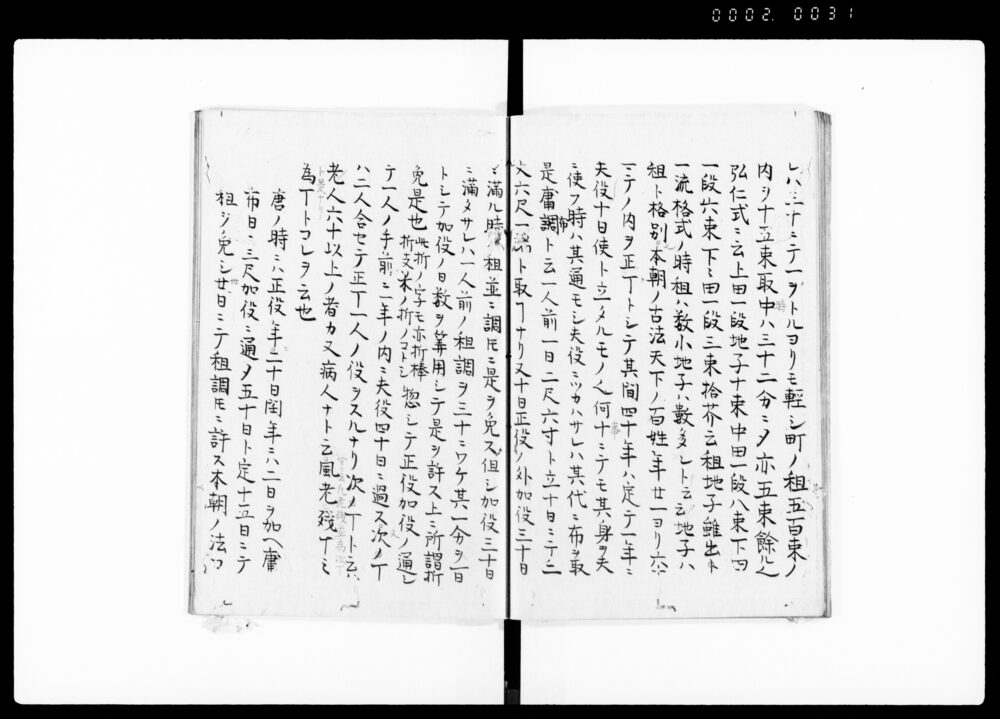 0002.0031
レハ三十ニテ一ヲトルヨリモ軽シ町ノ租五百束ノ
内ヲ十五束取中ハ三十二分ニメ亦五束餘ル也
弘仁式ニ云上田一段地子十束中田一段八束下田
一段六束下々田一段三束拾芥云租地子雖出于
一流格式ノ時租ハ数小地子ハ數多シト云云地子ハ
租ト格別本朝ノ古法天下ノ百姓年廿一ヨリ六十
ニテノ内ヲ正丁トシテ其間四十年ハ定テ一年ニ
夫役十日使ト立タルモノ也何十ニテモ其身ヲ夫
ニ使フ時ハ其通モシ夫役ニツカハサレハ其代ニ布ヲ取
是庸調布ト云一人前一日二尺六寸ト立十日ニテ二
丈六尺ト取ナリ又十日正役ノ外加役三十日
ニ満ル時租並ニ調トモニ是ヲ免ス但シ加役三十日
ニ満タサレハ一人前ノ租調ヲ三十ニワケ其一分ヲ一日
トシテ加役ノ日数ヲ算用シテ是ヲ許ス上ニ所謂折
免是也此折ノ字モ亦折棒折支米ノ折ノコトシ惣シテ正役加役ノ通シ
テ一人ノ手前ニ一年ノ内ニ夫役四十日ニ過ス次ノ丁
ハ二人合セテ正丁一人ノ役ヲスルナリ次ノ丁ト云ハ
老人六十以上ノ者カ又病人ナト云風老殘丁ミ
為丁トコレヲ云也
唐ノ時ニハ正役年二十日閏年ニハ二日ヲ加ヘ庸
布日ニ三尺加役ニ通メ五十日ト定十五日ニテ
租ヲ免シ廿日ニテ租調トモニ許ス本朝ノ法ハ